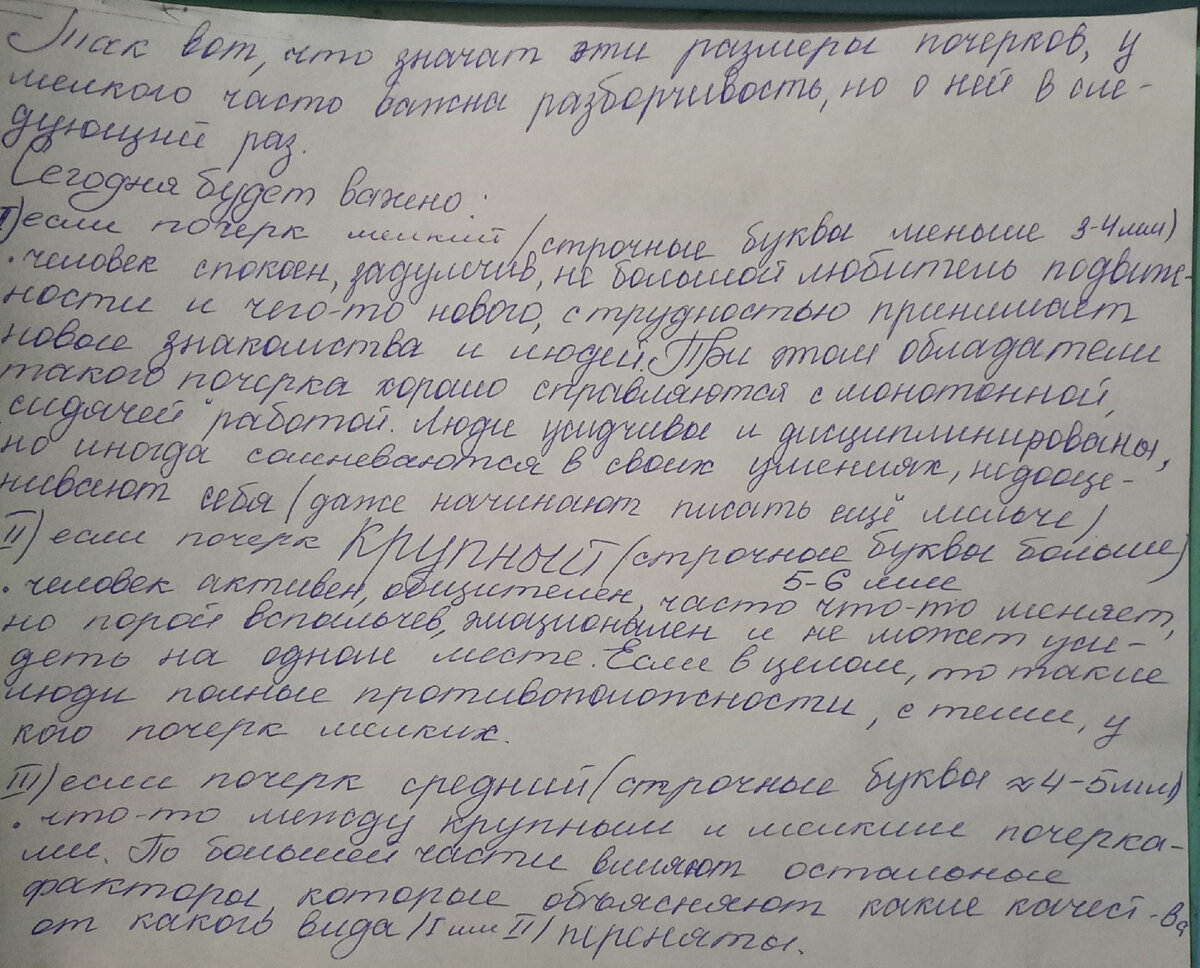 Так вот, что значат эти размеры почерков, у
мелкого часто важна разборчивость, но о ней в сле-
дующий раз.
Сегодня будет важно:
I) если почерк мелкий (строчные буквы меньше 3-4 мм)
· человек спокоен, задумчив, не большой любитель подвиж-
ности и чего-то нового, с трудностью принимает
новые знакомства и людей. При этом обладатели
такого почерка хорошо справляются с монотонной,
сидячей работой. Люди усидчивы и дисциплинированы,
но иногда сомневаются в своих умениях, недооце-
нивают себя (даже начинают писать ещё мельче)
II) если почерк крупный (строчные буквы больше
5-6 мм)
· человек активен, общителен, часто что-то меняет,
но порой вспыльчев, эмоционален и не может уси-
деть на одном месте. Если в целом, то такие
люди полные противоположности, с теми, у
кого почерк мелких.
III) если почерк средний (строчные буквы ≈ 4-5 мм)
· что-то между крупным и мелким почерка-
ми. По большей части влияют остальные
факторы, которые объясняют какие качест-ва
от какого вида (I или II) переняты.